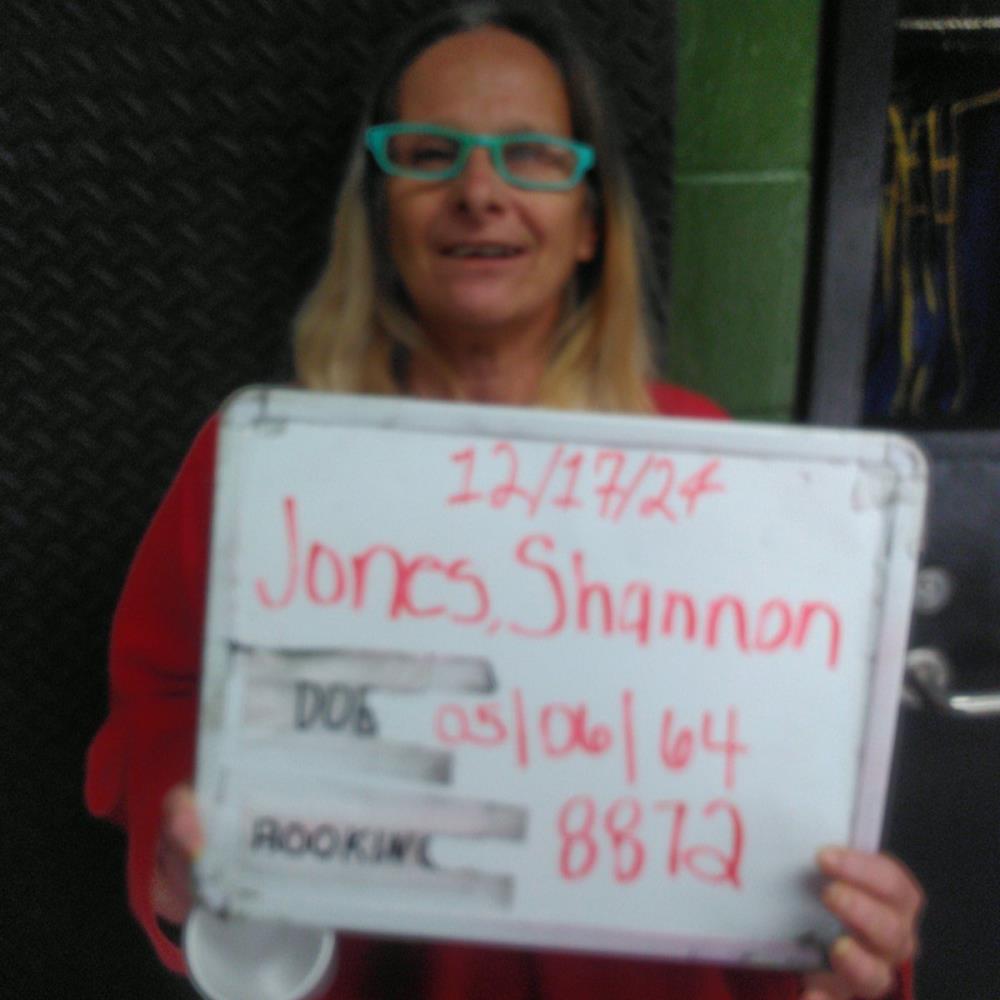 12/17/24
Jones, Shannon
DOB 05/06/64
BOOKING 8872